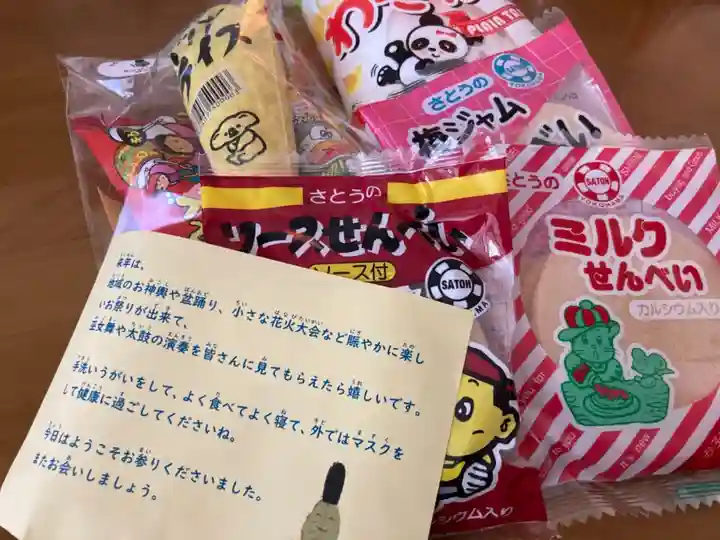 わ
PINJN TA
さとうの
梅ジャム
べい
さとうの
ソースせんべい
ソース付
SATOH
さとうの
SATOH
YOKOHAMA
ミルク
せんべい
カルシウム入り
It's new
カルシウム入り
来年は、
地域のお神輿や盆踊り、小さな花火大会など賑やかに楽し
いお祭りが出来て、
巫女舞や太鼓の演奏を皆さんに見てもらえたら嬉しいです。
手洗いうがいをして、よく食べてよく寝て、外ではマスクを
して健康に過ごしてくださいね。
今日はようこそお参りくださいました。
またお会いしましょう。